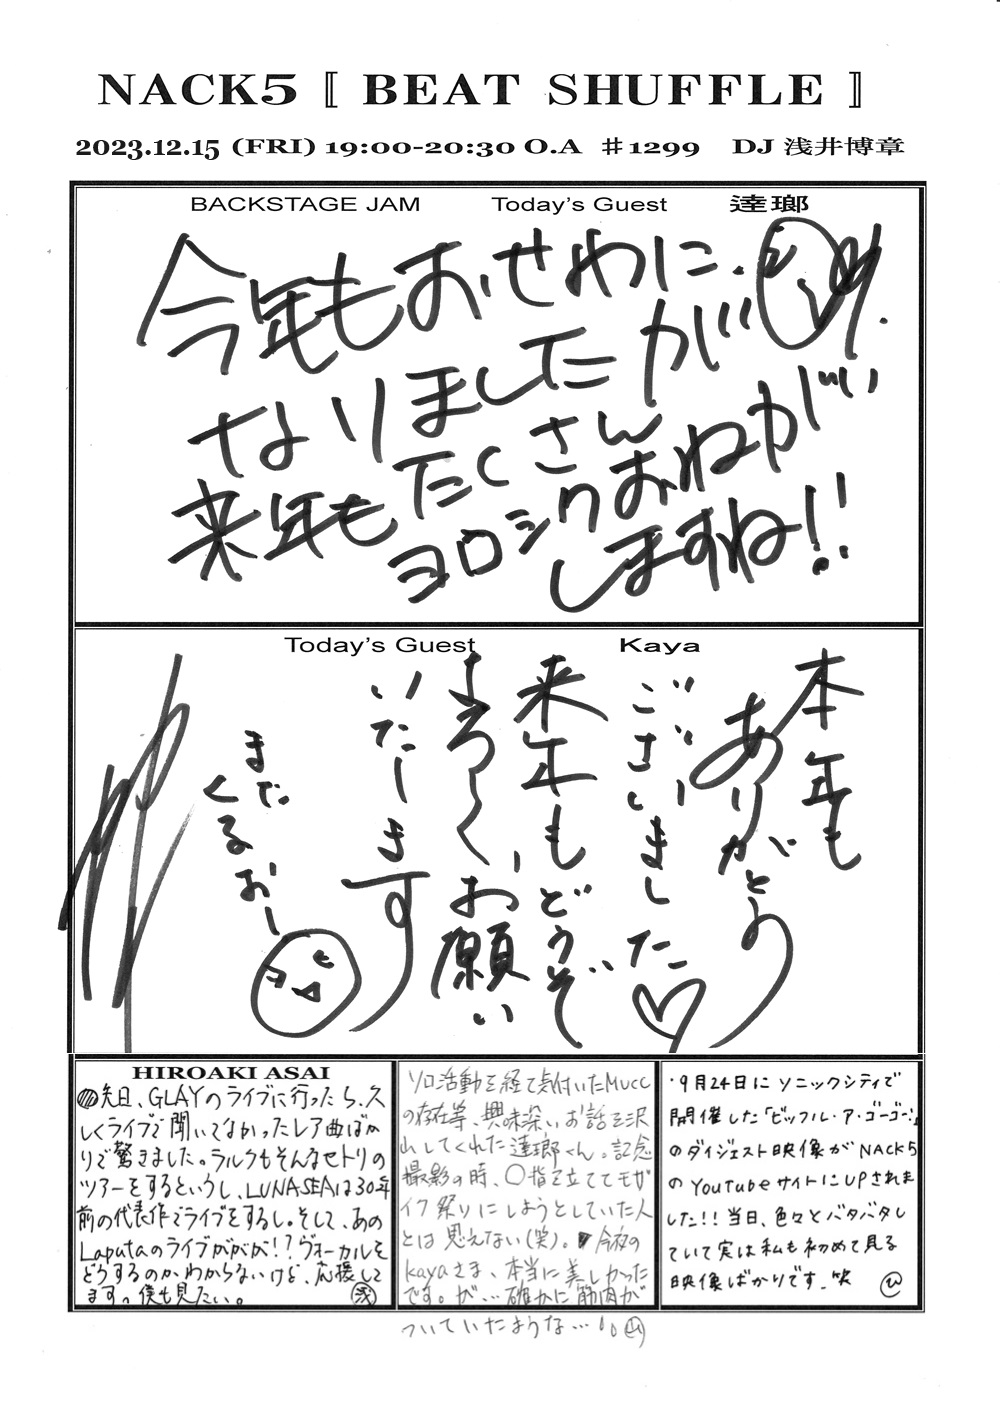 NACK5 〚 BEAT SHUFFLE 〛
2023.12.15 (FRI) 19:00-20:30 O.A ♯1299 DJ 浅井博章
BACKSTAGE JAM Today's Guest 逹瑯
今年もおせわに
なりましたが
来年もたくさん
ヨロシクおねがい
しますね!!
Today's Guest Kaya
本年も
ありがとう
ございました♡
来年もどうぞ
よろしくお願い
いたします
また
くるおー
HIROAKI ASAI
先日、GLAYのライブに行ったら、久
しくライブで聞いてなかったレア曲ばか
りで驚きました。ラルクもそんなセトリの
ツアーをするというし、LUNASEAは30年
前の代表作でライブをするし。そして、あの
Laputaのライブががが!?ヴォーカルを
どうするのかわからないけど、応援して
ますっ僕も見たい。 浅
ソロ活動を経て気付いたMUCC
の存在等、興味深いお話を沢
山してくれた逹瑯くん。記念
撮影の時、〇指を立ててモザ
イク祭りにしようとしていた人
とは思えない(笑)。今夜の
Kayaさま、本当に美しかった
です。が…確かに筋肉が
ついていたような… 山
・9月24日にソニックシティで
開催した「ビッフル・ア・ゴーゴー」
のダイジェスト映像がNACK5
のYouTubeサイトにUPされま
した!!当日、色々とバタバタし
ていて実は私も初めて見る
映像ばかりです。笑 ひ